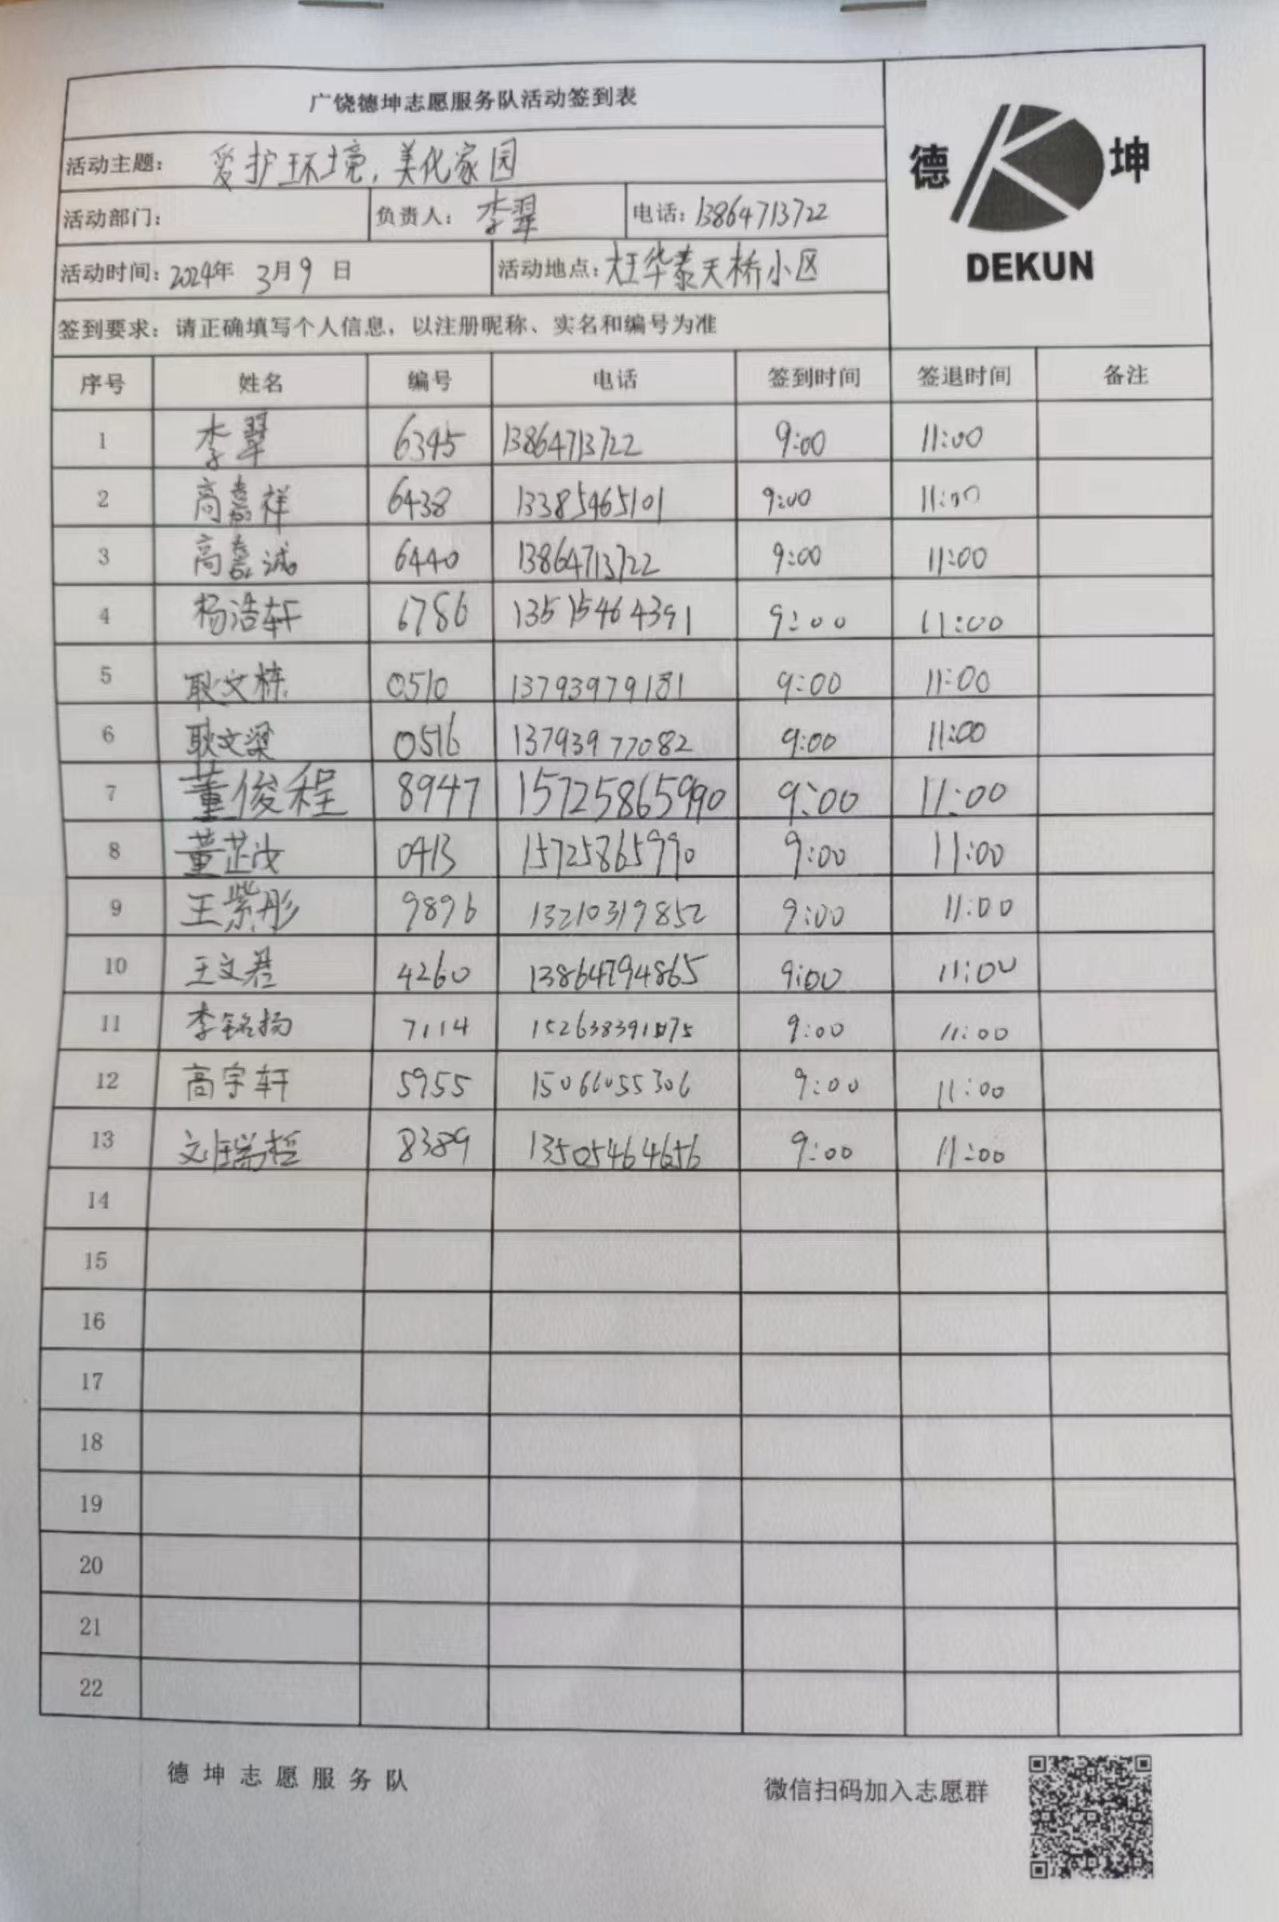 广饶德坤志愿服务队活动签到表
德 坤
DEKUN
活动主题: 爱护环境,美化家园
活动部门: 负责人: 李翠 电话: 13864713722
活动时间: 2024年 3月9日 活动地点: 大王华泰天桥小区
签到要求: 请正确填写个人信息, 以注册昵称、实名和编号为准
序号 姓名 编号 电话 签到时间 签退时间 备注
1 李翠 6345 13864713722 9:00 11:00
2 高嘉祥 6438 13385465101 9:00 11:00
3 高嘉诚 6440 13864713722 9:00 11:00
4 杨浩轩 6786 13515464391 9:00 11:00
5 耿文栋 0510 13793979181 9:00 11:00
6 耿文梁 0516 13793977082 9:00 11:00
7 董俊程 8947 15725865990 9:00 11:00
8 董芷 0413 15725865990 9:00 11:00
9 王紫彤 9896 13210319852 9:00 11:00
10 王文君 4260 13864794865 9:00 11:00
11 李铭扬 7114 9:00 11:00
12 高宇轩 5955 15066055306 9:00 11:00
13 瑞哲 8389 13505464656 9:00 11:00
14
15
16
17
18
19
20
21
22
德坤志愿服务队 微信扫码加入志愿群